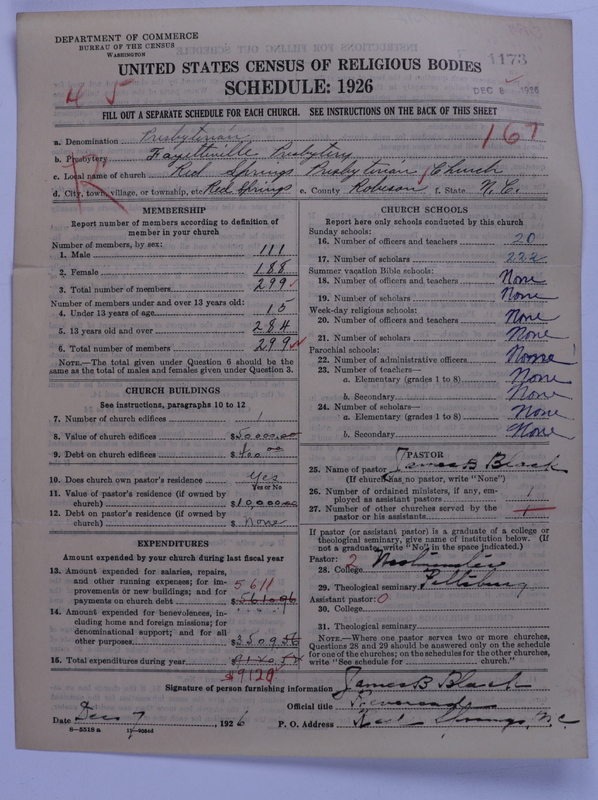 DEPARTMENT OF COMMERCE
BUREAU OF THE CENSUS
WASHINGTON
1173
DEC 8 1926
UNITED STATES CENSUS OF RELIGIOUS BODIES
SCHEDULE: 1926
45
FILL OUT A SEPARATE SCHEDULE FOR EACH CHURCH. SEE INSTRUCTIONS ON THE BACK OF THIS SHEET
167
a. Denomination Presbyterian
b. Presbytery Fayetteville Presbytery
c. Local name of church Red Springs Presbyterian Church
d. City, town, village, or township, etc. Red Springs e. County Robeson f. State N.C.
MEMBERSHIP
Report number of members according to definition of
member in your church
Number of members, by sex:
1. Male 111
2. Female 188
3. Total number of members 299
Number of members under and over 13 years old:
4. Under 13 years of age 15
5. 13 years old and over 284
6. Total number of members 299
NOTE.—The total given under Question 6 should be the
same as the total of males and females given under Question 3.
CHURCH BUILDINGS
See instructions, paragraphs 10 to 12
7. Number of church edifices 1
8. Value of church edifices $50000.00
9. Debt on church edifices $400.00
10. Does church own pastor's residence Yes
Yes or No
11. Value of pastor's residence (if owned by
church) $10,000.00
12. Debt on pastor's residence (if owned by
church) $ None
EXPENDITURES
Amount expended by your church during last fiscal year
13. Amount expended for salaries, repairs,
and other running expenses; for im-
provements or new buildings; and for
payments on church debt 5611
$5610.96
14. Amount expended for benevolences, in-
cluding home and foreign missions; for
denominational support; and for all
other purposes $3509.56
15. Total expenditures during year
$9120
CHURCH SCHOOLS
Report here only schools conducted by this church
Sunday schools:
16. Number of officers and teachers 20
17. Number of scholars 222
Summer vacation Bible schools:
18. Number of officers and teachers None
19. Number of scholars None
Week-day religious schools:
20. Number of officers and teachers None
21. Number of scholars None
Parochial schools:
22. Number of administrative officers None
23. Number of teachers—
a. Elementary (grades 1 to 8) None
b. Secondary None
24. Number of scholars—
a. Elementary (grades 1 to 8) None
b. Secondary None
PASTOR
25. Name of pastor James B Black
(If church has no pastor, write "None")
26. Number of ordained ministers, if any, em-
ployed as assistant pastors 1
27. Number of other churches served by the
pastor or his assistants 1
If pastor (or assistant pastor) is a graduate of a college or
theological seminary, give name of institution below. (If
not a graduate, write "No" in the space indicated.)
Pastor: 2
28. College Westminster
29. Theological seminary Pittsburg
Assistant pastor: 0
30. College
31. Theological seminary
NOTE.—Where one pastor serves two or more churches,
Questions 28 and 29 should be answered only on the schedule
for one of the churches; on the schedules for the other churches,
write "See schedule for church."
Signature of person furnishing information James B Black
Official title
Date Dec 7, 1926 P. O. Address Red Springs, N.C.
8—5518 a